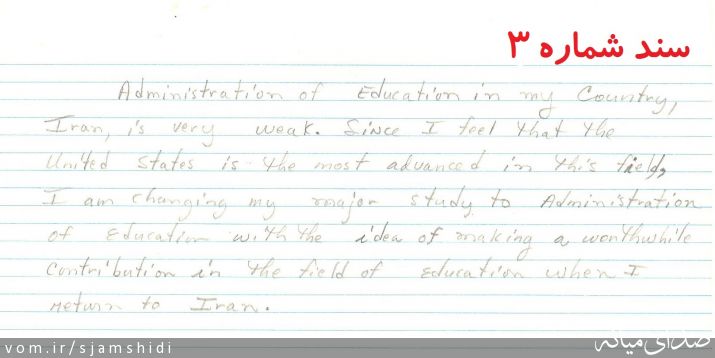 سند شماره ۳
Administration of Education in my Country,
Iran, is very weak. Since I feel that the
United States is the most advanced in this field,
I am changing my major study to Administration
of Education with the idea of making a worthwhile
contribution in the field of education when I
return to Iran.
vom.ir/sjamshidi
صدای میانه